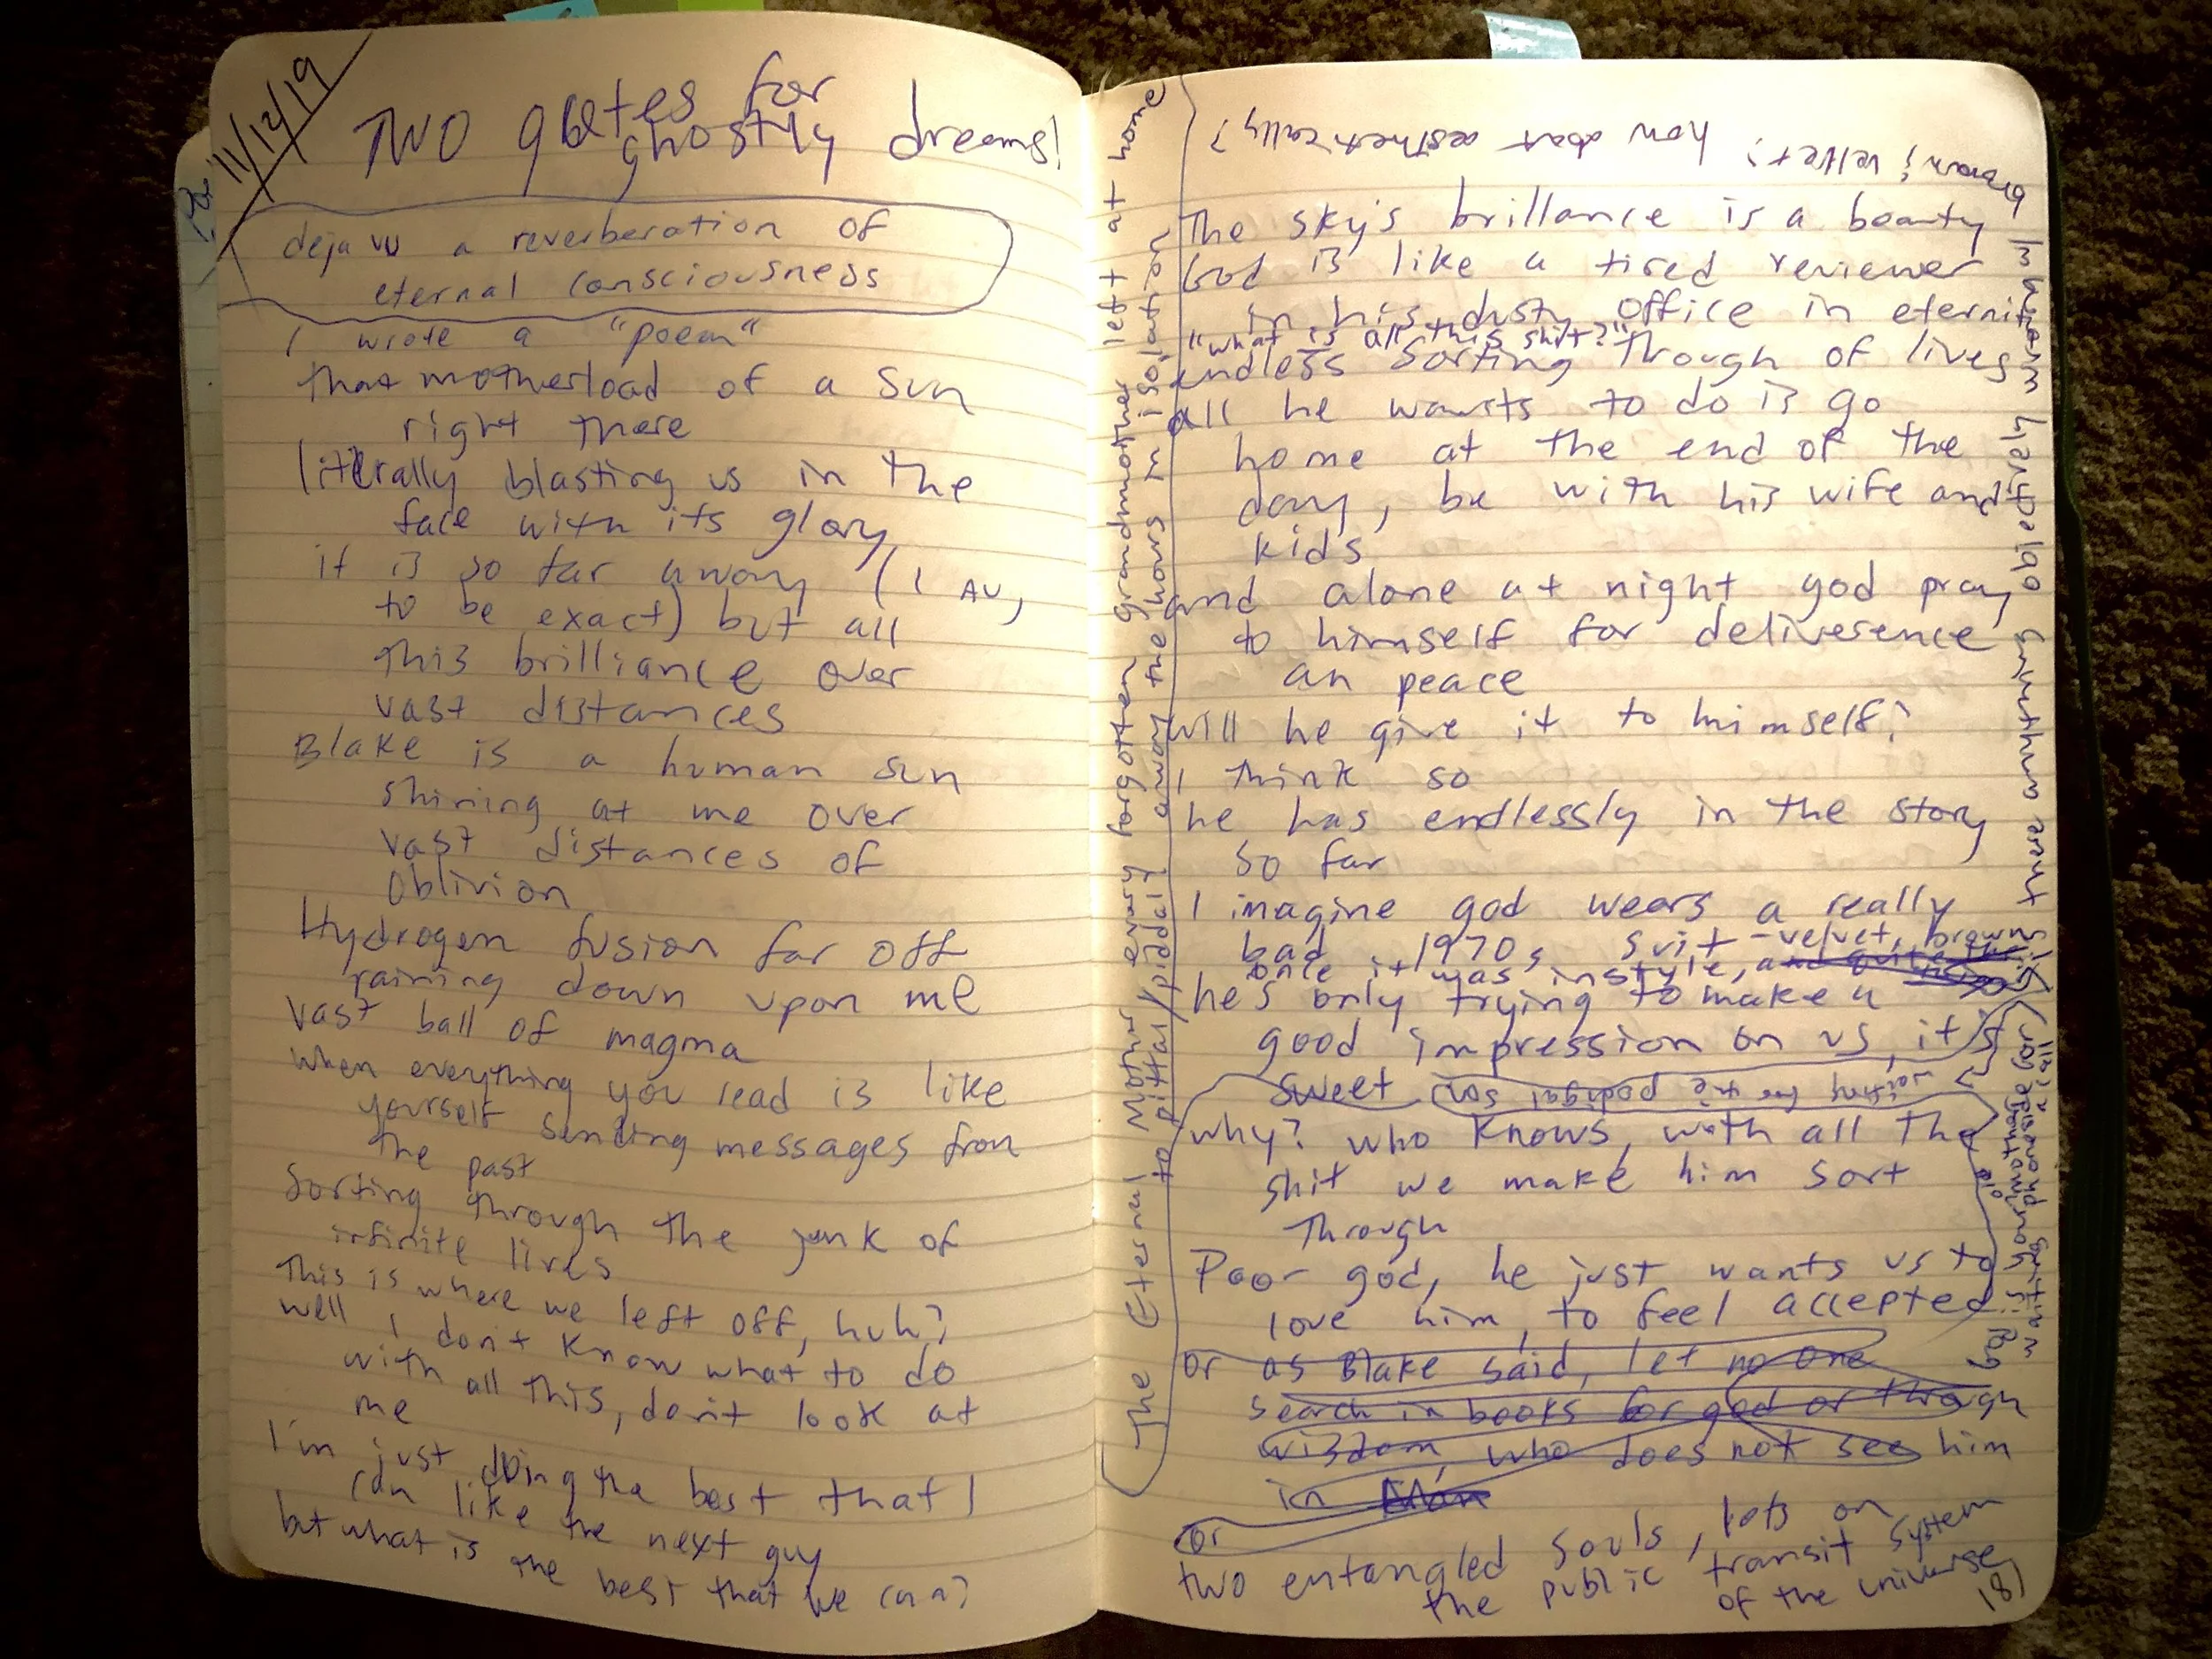 11/12/19
Two gates for
ghostly dreams!
deja vu a reverberation of
eternal consciousness
I wrote a "poem"
that motherload of a sun
right there
literally blasting us in the
face with its glory
it is so far away (1 AU,
to be exact) but all
this brilliance over
vast distances
Blake is a human sun
shining at me over
vast distances of
oblivion
Hydrogen fusion far off
raining down upon me
vast ball of magma
when everything you read is like
yourself sending messages from
the past
Sorting through the junk of
infinite lives
This is where we left off, huh?
well I don't know what to do
with all this, don't look at
me
I'm just doing the best that I
can like the next guy
but what is the best that we can?
The Eternal Mother every forgotten grandmother left at home
to pittar/piddal? away the hours in isolation
The sky's brillance is a beauty
God is like a tired reviewer
in his dusty office in eternit
"what is all this shit?"
endless sorting through of lives
all he wants to do is go
home at the end of the
day, be with his wife and
kids
and alone at night god pray
to himself for deliverence
an peace
will he give it to himself?
I think so
he has endlessly in the story
so far
I imagine god wears a really
bad 1970s suit - velvet, brown
once it was in style, and quite
he's only trying to make a
good impression on us, it's
sweet
waiting for the podigal son
why? who knows, with all the
shit we make him sort
through
Poor god, he just wants us to
love him, to feel accepted
or as Blake said, let no one
search in books for god or through
wisdom, who does not see him
in Man
or
two entangled souls, lots on
the public transit system
of the universe
181
is there anything objectively wrong w/
brown? velvet? how about aesthetically?
waiting a call